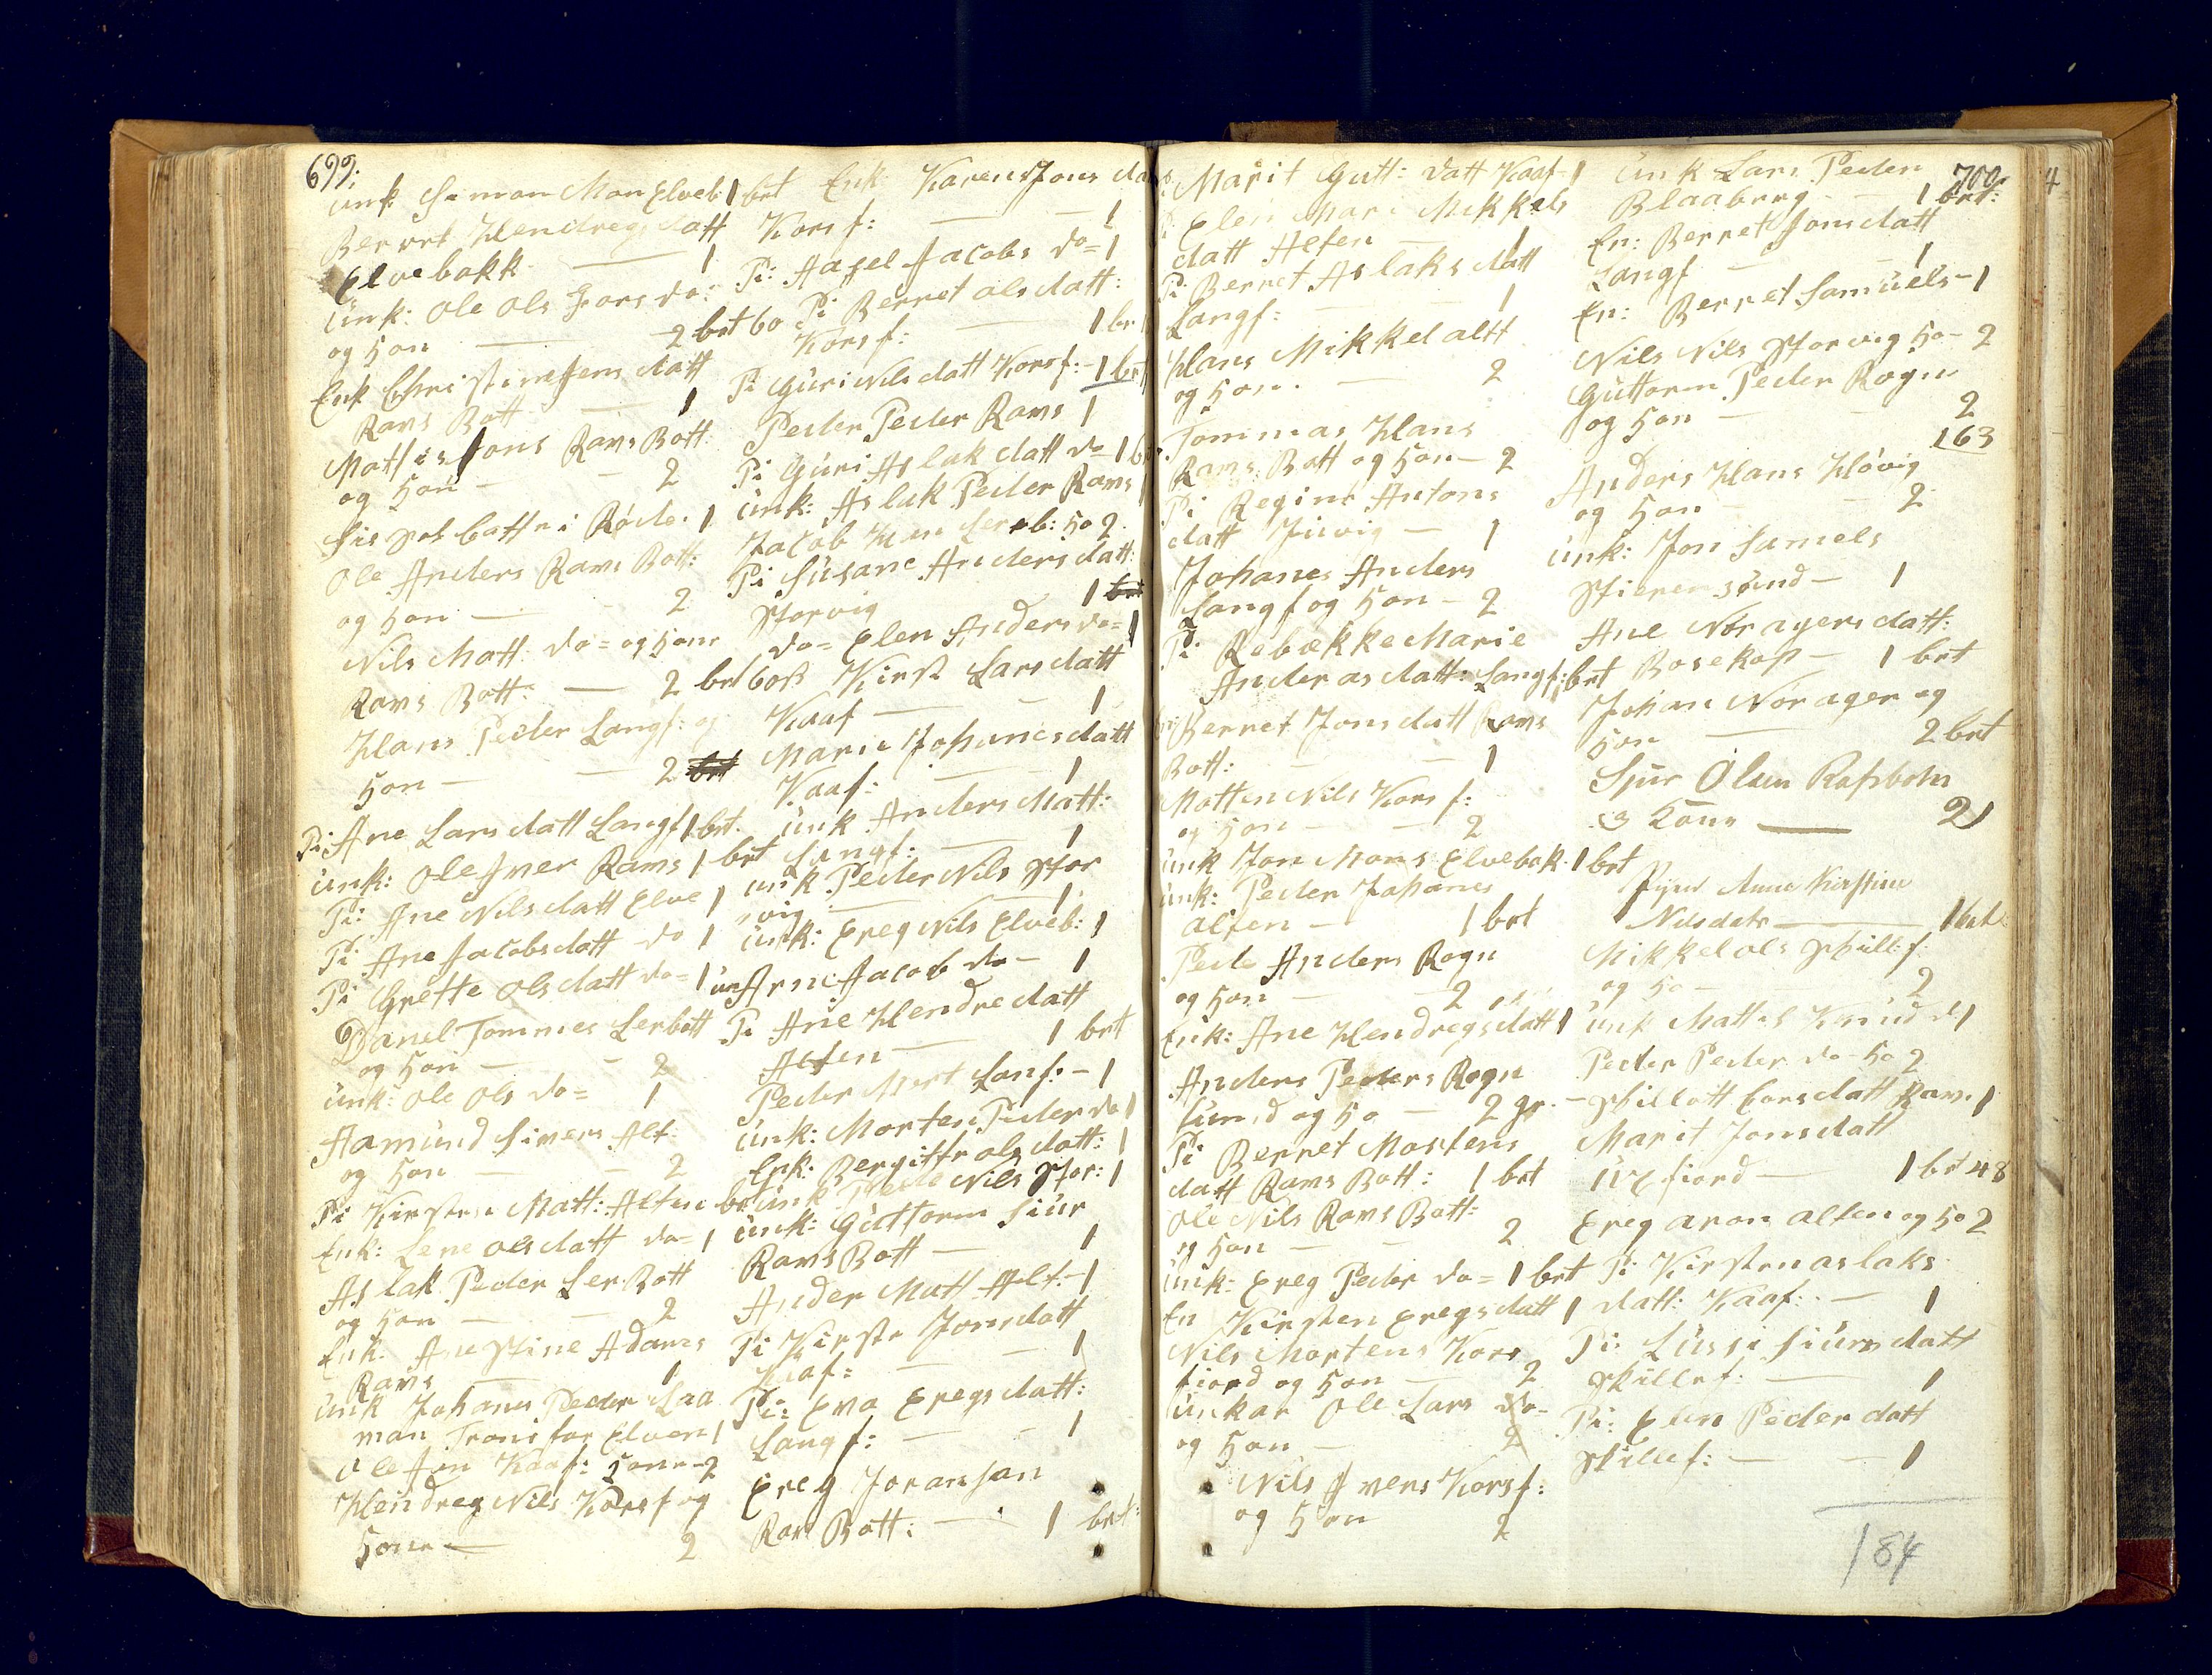 699;
Unk: Simon Mon Elveb: 1 brt
Berret Hendregsdatt
Elvebakk 1
Unk: Ole Ols Fors do:
og Hon 2 brt bo
Enk Christine Jens datt
Ravs Bott 1
Mathis Jons Ravs Bott:
og Hon 2
1
Ole Anders Ravs Bott:
og Hon 2
Nils Matt: do= og Hone
Ravs Bott: 2 brt
Hans Peder Langf: og
Hon 2
Pi Ane Lars datt Langf 1 brt.
Unk: Ole Iver Ravs 1 brt
Pi: Ane Nils datt Elve 1
Pi Ane Jacobsdatt do 1
Pi Grette Ols datt do= 1
Danel Tommes Lerbott
og Hon 2
Unk: Ole Ols do= 1
Aamund Sivers Alt:
og Hon 2
Pi Kirsten Matt: Alten
Enk: Lene Olsdatt do= 1
Aslak Peder Ler Bott
og Hon 2
Enk. Ane Stine Adams
Ravs 1
Unk Johanes Peder Laa
man Troni for Elven 1
Ole Jon Kaaf: Hone - 2
Hendreg Nils Korsf og
Hone 2
Enk Karen Jons da
Korsf: 1
Pi: Aasel Jacobs do= 1
Pi Berret Ols datt:
Korsf: 1 br
Pi Guri Nils datt Korsf: - 1 brt
Peder Peder Ravs 1
Pi Guri Aslak datt do 1 b
Unk: Aslak Peder Ravs
Jacob Han Lerb: Ho 2.
Pi Susane Anders datt:
Storvig 1
do= Elen Anders do= 1
Kirst Lars datt
Kaaf 1
Marie Johanes datt
Kaaf: 1
Unk Anders Matt:
Langf: 1
Unk Peder Nils Stor
vig 1
Unk: Ereg Nils Elveb: 1
Arne Jacob do - 1
Pi Ane Hendre datt
Alten 1 brt
Peder Mort Lanf: - 1
Unk: Morten Peder do 1
Enk: Bergitte Ols datt: 1
Unk Pede Nils Stor: 1
Unk: Guttorm Siur
Ravs Bott 1
Ander Matt Alt: - 1
Pi Kirste Jonsdatt
Kaaf: 1
Pi: Eva Eregs datt:
Langf: 1
Ereg Joransan
Rav Bott: 1 brt:
Marit Gutt: datt Kaaf - 1
Elen Mari Mikkels
datt Alten 1
Pi Berret Aslaks datt
Langf: 1
Hans Mikkel Altt
og Hon. 2
Tommas Hans
Ravs Bott og Hon - 2
Pi Regine Antons
datt 1
Johanes Anders
Langf og Hon - 2
Pi Rebække Marie
Anderas datt: Langf: brt
Berret Jonsdatt Ravs
Bott: 1
Matten Nils Korsf:
og Hon 2
Unk Jon Mons Elvebak. 1 brt
Unk: Peder Johanes
Alten - 1 brt
Pede Anders Rogn
og Hon 2
Enk: Ane Hendregsdatt 1
Anders Peders Rogn
sund og Ho 2 gr.
Pi Berret Mortens
datt Ravs Bott: 1 brt
Ole Nils Ravs Bott:
og Hon 2
Unk: Ereg Peder do= 1 brt
En Kirsten Eregsdatt 1
Nils Mortens Kors
fiord og Hon 2
Unkar Ole Lars do-
og Hon 2
Nils Ivers Korsf:
og Hon 2
700
Unk Lars Peder
Blaaberg 1 brt:
En: Berret Jonsdatt
Langf 1
En: Berret Samuels - 1
Nils Nils Storvig Ho - 2
Guttorm Peder Rogn
og Hon 2
163
Anders Hans Høvig
og Hon 2
Unk: Jon Samels
Stieren sund - 1
Ane Nøragers datt:
Bosekop 1 brt
Johan Nørager og
Hon 2 brt
Sjur Olsen Rafsbotn
& Kone 2
Pigen Anne Kirstine
Nilsdatr 1
Mikkel Ols Skillef:
og Ho 2
Unk Mattis Knud d 1
Peder Peder do - Ho 2
datt Rav. 1
Marit Jonsdatt
fiord 1 brt 48
Ereg Aron Alten og Ho 2
Pi Kirsten Aslaks
datt: Kaaf: 1
Pi: Lussi Siurs datt
Skillef: 1
Pi: Elen Peder datt
Skillef: 1
184
4